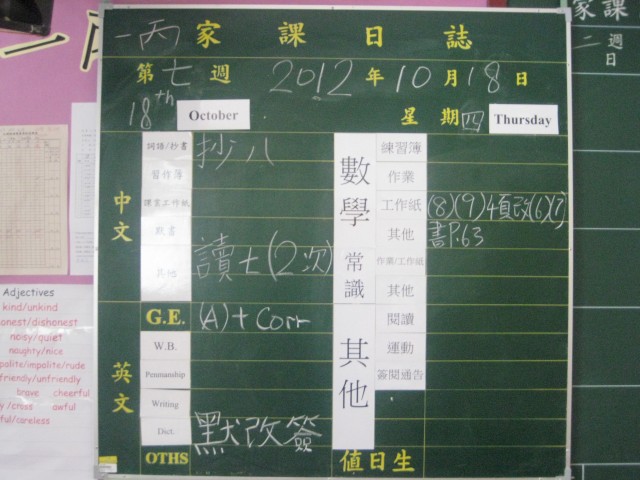 一丙家課日誌
第七週 2012年10月18日
18th October 星期四 Thursday
中文
詞語/抄書 抄八
習作簿
課業工作紙
默書
其他 讀七(2次)
英文
G.E. (A)+Corr
W.B.
Penmanship
Writing
Dict. 默改簽
OTHS
數學
練習簿
作業
工作紙 (8)(9)
其他 書P.63
常識
作業/工作紙
其他
其他
閱讀
運動
簽閱通告
值日生
家課
二週
日
Adjectives
kind/unkind
onest/dishonest
noisy/quiet
naughty/nice
polite/impolite/rude
friendly/unfriendly
brave cheerful
y/cross awful
ful/careless